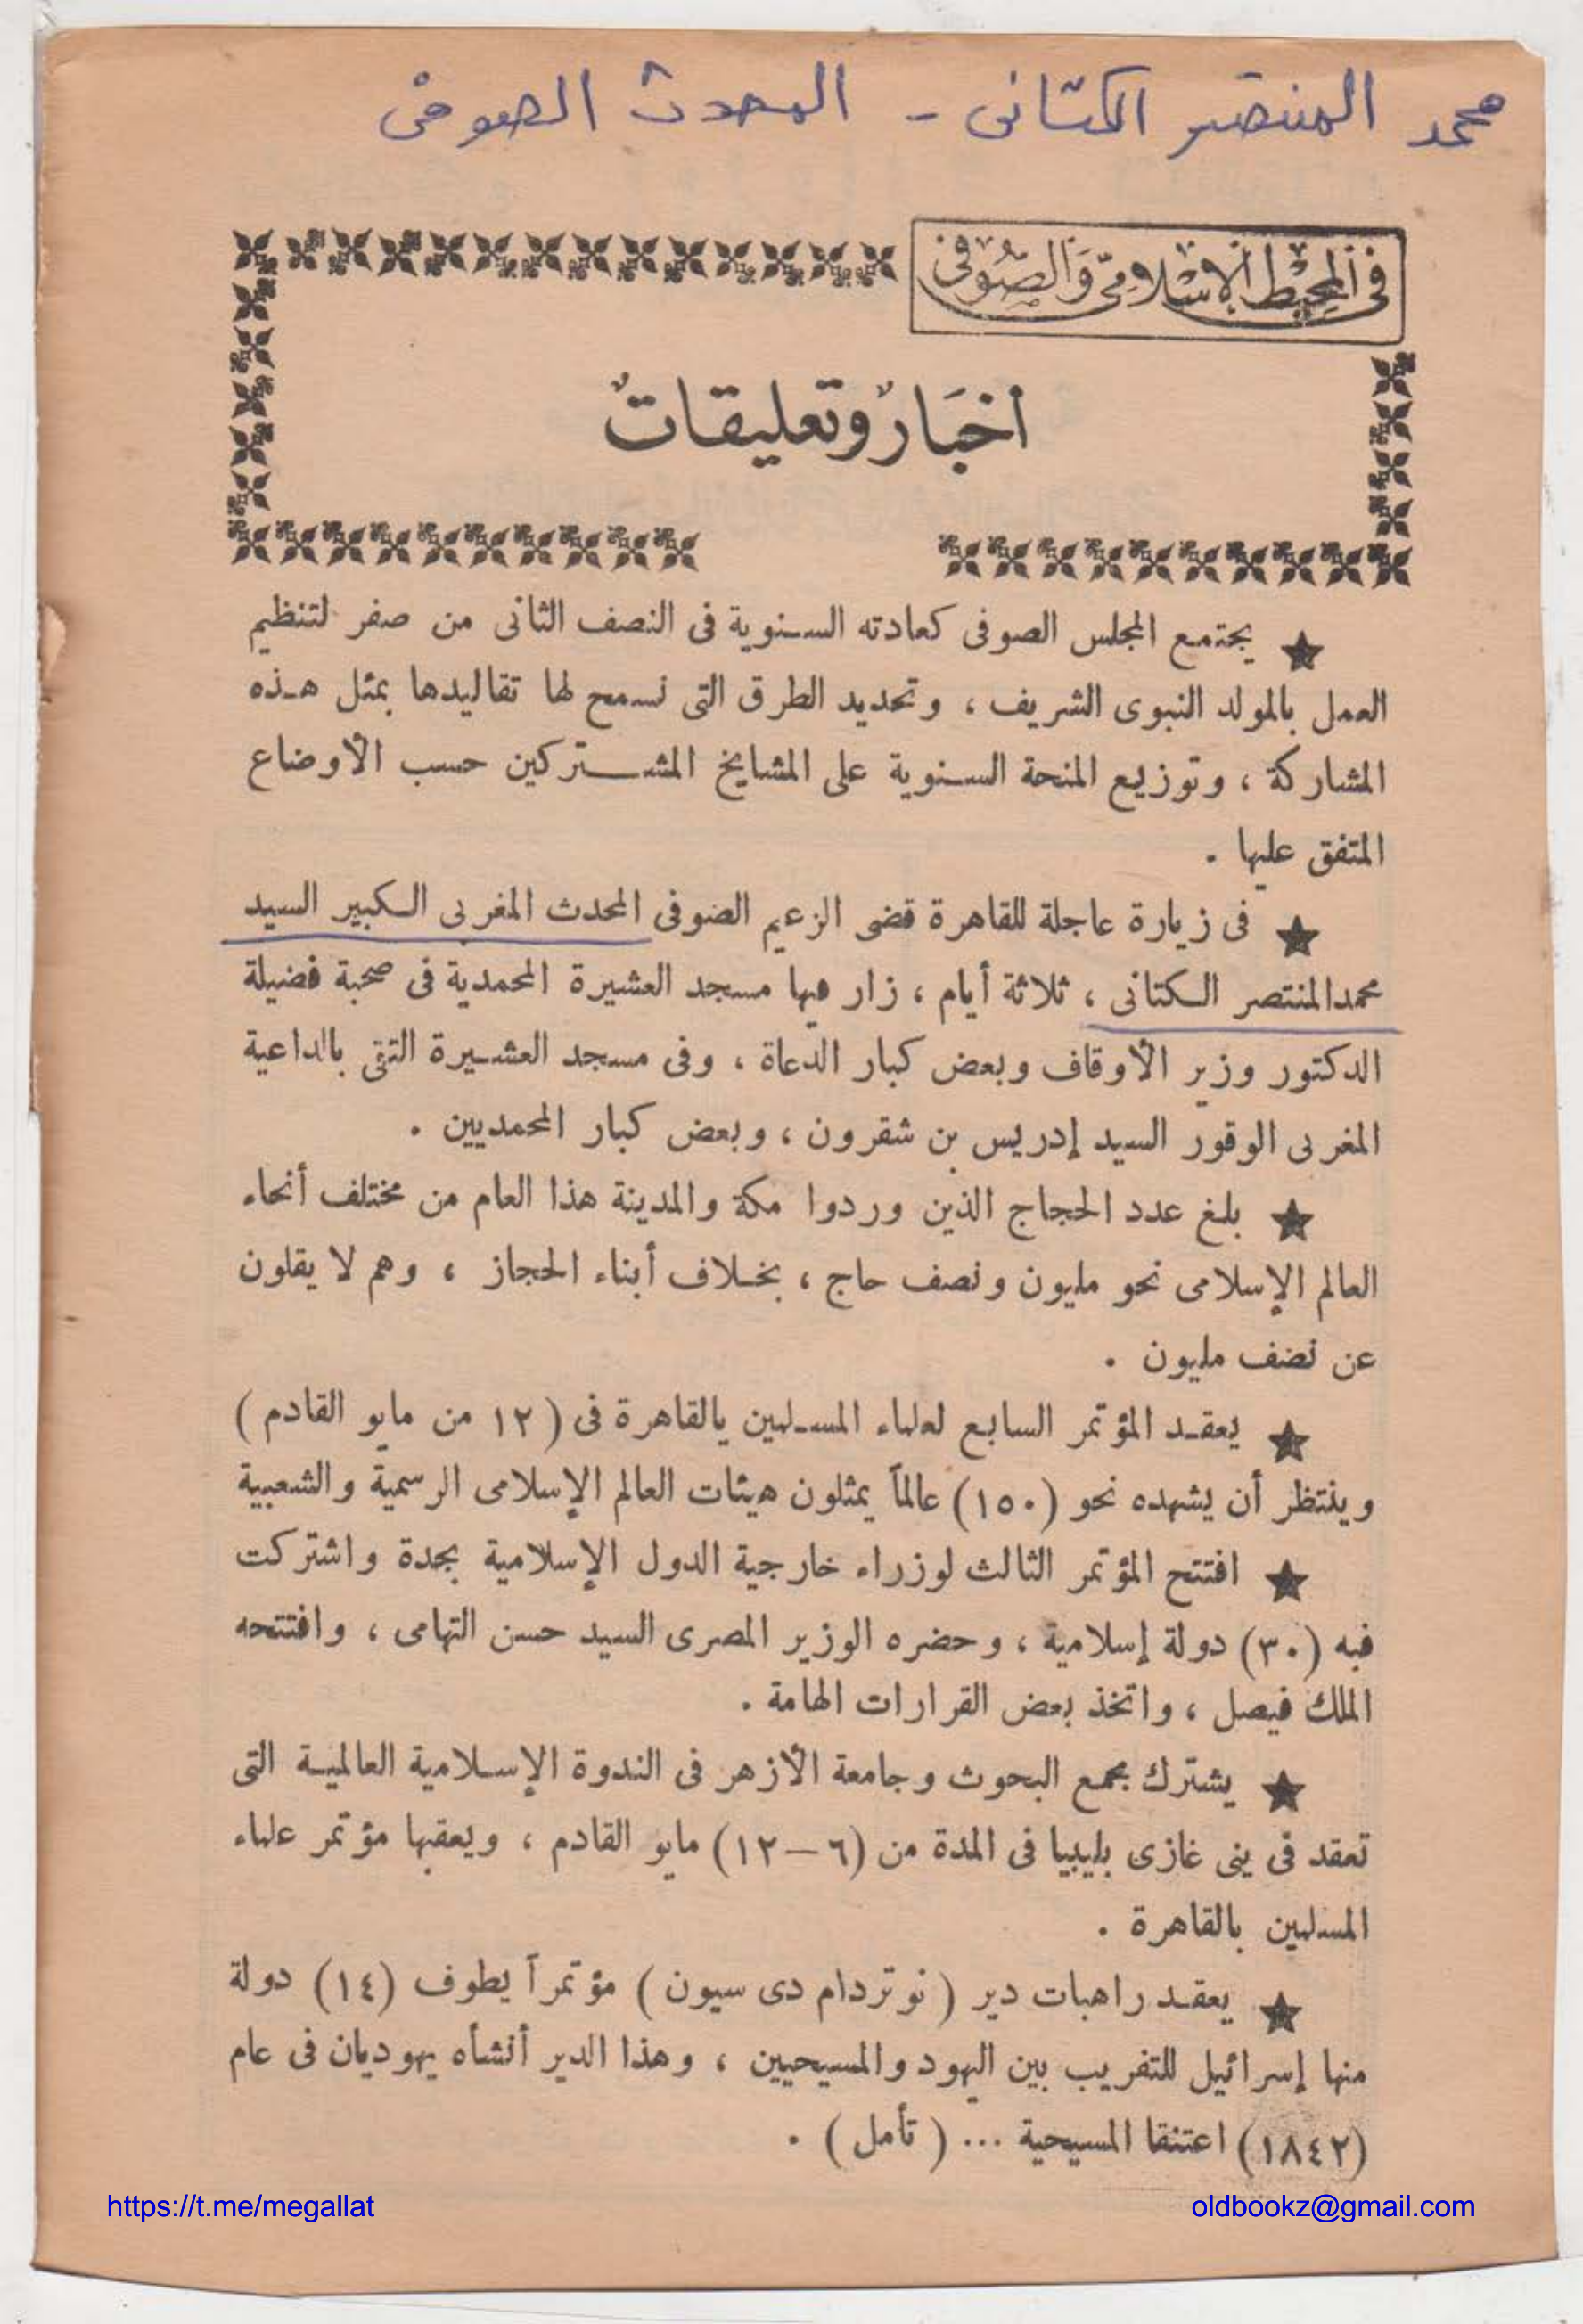 محمد المنتصر الكتانى - المحدث الصوفى
فى المحيط الإسلامى والصوفى
أخبار وتعليقات
★ يجتمع المجلس الصوفى كعادته السنوية فى النصف الثانى من صفر لتنظيم
العمل بالمولد النبوى الشريف ، وتحديد الطرق التى تسمح لها تقاليدها بمثل هذه
المشاركة ، وتوزيع المنحة السنوية على المشايخ المشتركين حسب الأوضاع
المتفق عليها .
★ فى زيارة عاجلة للقاهرة قضى الزعيم الصوفى المحدث المغربى الكبير السيد
محمد المنتصر الكتانى ، ثلاثة أيام ، زار فيها مسجد العشيرة المحمدية فى صحبة فضيلة
الدكتور وزير الأوقاف وبعض كبار الدعاة ، وفى مسجد العشيرة التقى بالداعية
المغربى الوقور السيد إدريس بن شقرون ، وبعض كبار المحمديين .
★ بلغ عدد الحجاج الذين وردوا مكة والمدينة هذا العام من مختلف أنحاء
العالم الإسلامى نحو مليون ونصف حاج ، بخلاف أبناء الحجاز ، وهم لا يقلون
عن نصف مليون .
★ يعقد المؤتمر السابع لعلماء المسلمين بالقاهرة فى ( ١٢ من مايو القادم )
وينتظر أن يشهده نحو (١٥٠) عالماً يمثلون هيئات العالم الإسلامى الرسمية والشعبية
★ افتتح المؤتمر الثالث لوزراء خارجية الدول الإسلامية بجدة واشتركت
فيه (٣٠) دولة إسلامية ، وحضره الوزير المصرى السيد حسن التهامى ، وافتتحه
الملك فيصل ، واتخذ بعض القرارات الهامة .
★ يشترك مجمع البحوث وجامعة الأزهر فى الندوة الإسلامية العالمية التى
تعقد فى بنى غازى بليبيا فى المدة من (٦ – ١٢) مايو القادم ، ويعقبها مؤتمر علماء
المسلمين بالقاهرة .
★ يعقد راهبات دير ( نوتردام دى سيون ) مؤتمراً يطوف (١٤) دولة
منها إسرائيل للتقريب بين اليهود والمسيحيين ، وهذا الدير أنشأه يهوديان فى عام
(١٨٤٢) اعتنقا المسيحية ... ( تأمل ) .
https://t.me/megallat
oldbookz@gmail.com